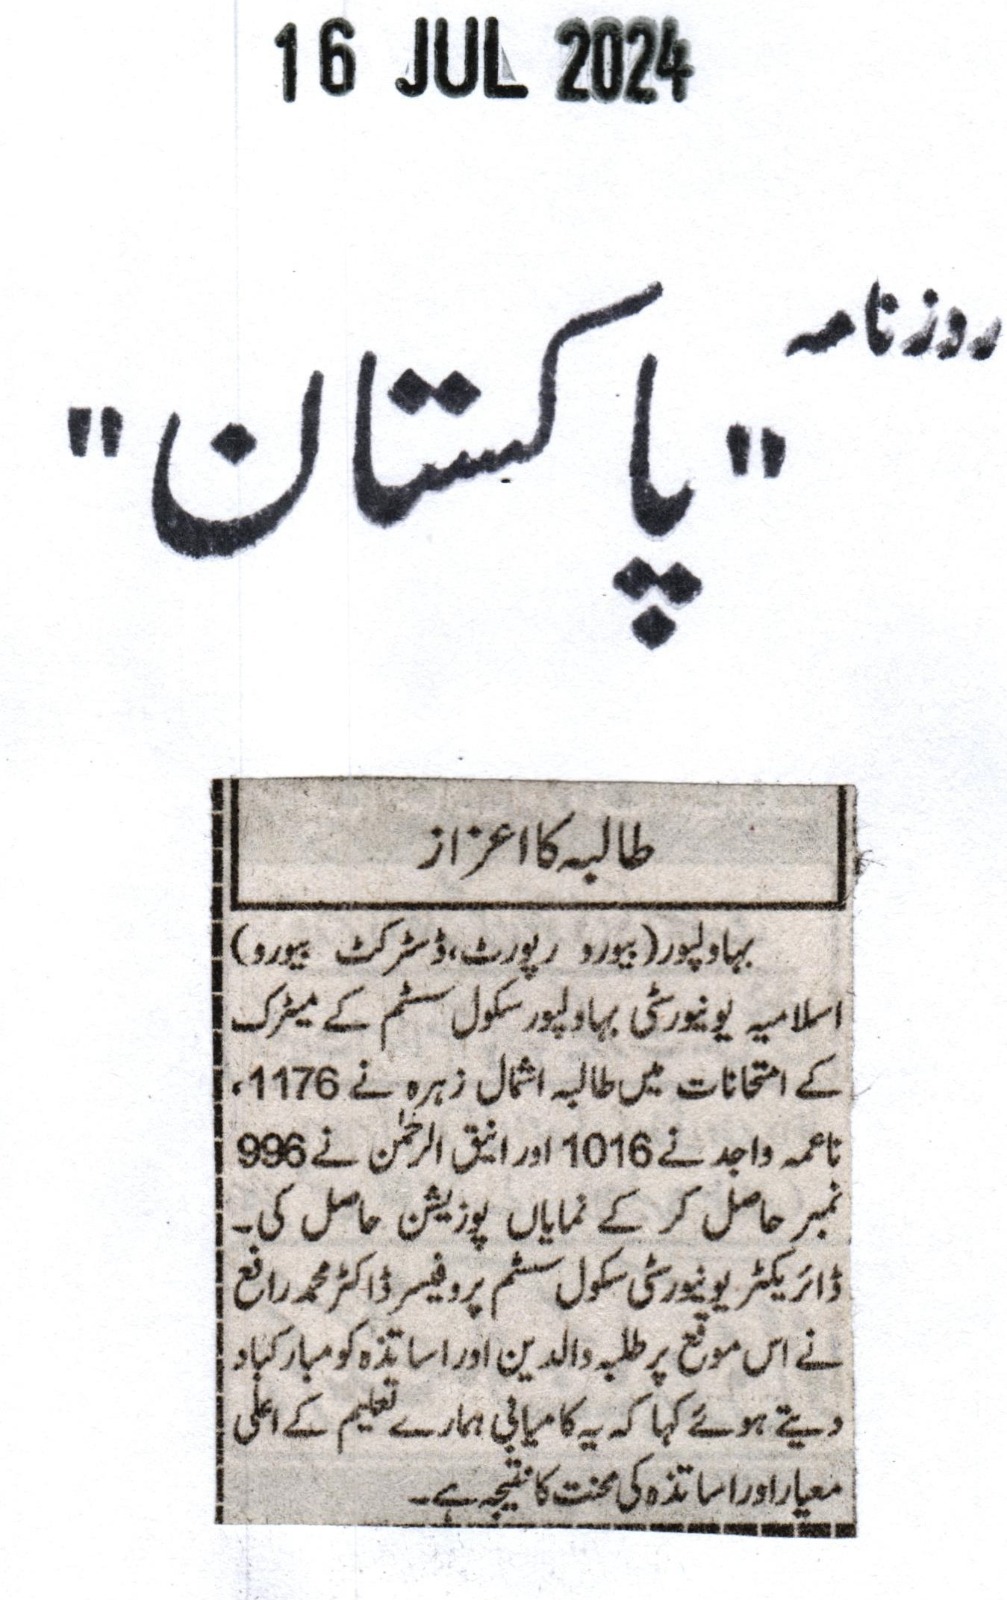 16 JUL 2024
روزنامہ
"پاکستان"
طالبہ کا اعزاز
بہاولپور (بیورو رپورٹ، ڈسٹرکٹ بیورو)
اسلامیہ یونیورسٹی بہاولپور سکول سسٹم کے میٹرک
کے امتحانات میں طالبہ اشمال زہرہ نے 1176،
ناعمہ واجد نے 1016 اور انیق الرحمٰن نے 996
نمبر حاصل کر کے نمایاں پوزیشن حاصل کی۔
ڈائریکٹر یونیورسٹی سکول سسٹم پروفیسر ڈاکٹر محمد رافع
نے اس موقع پر طلبہ والدین اور اساتذہ کو مبارکباد
دیتے ہوئے کہا کہ یہ کامیابی ہمارے تعلیم کے اعلٰی
معیار اور اساتذہ کی محنت کا نتیجہ ہے۔